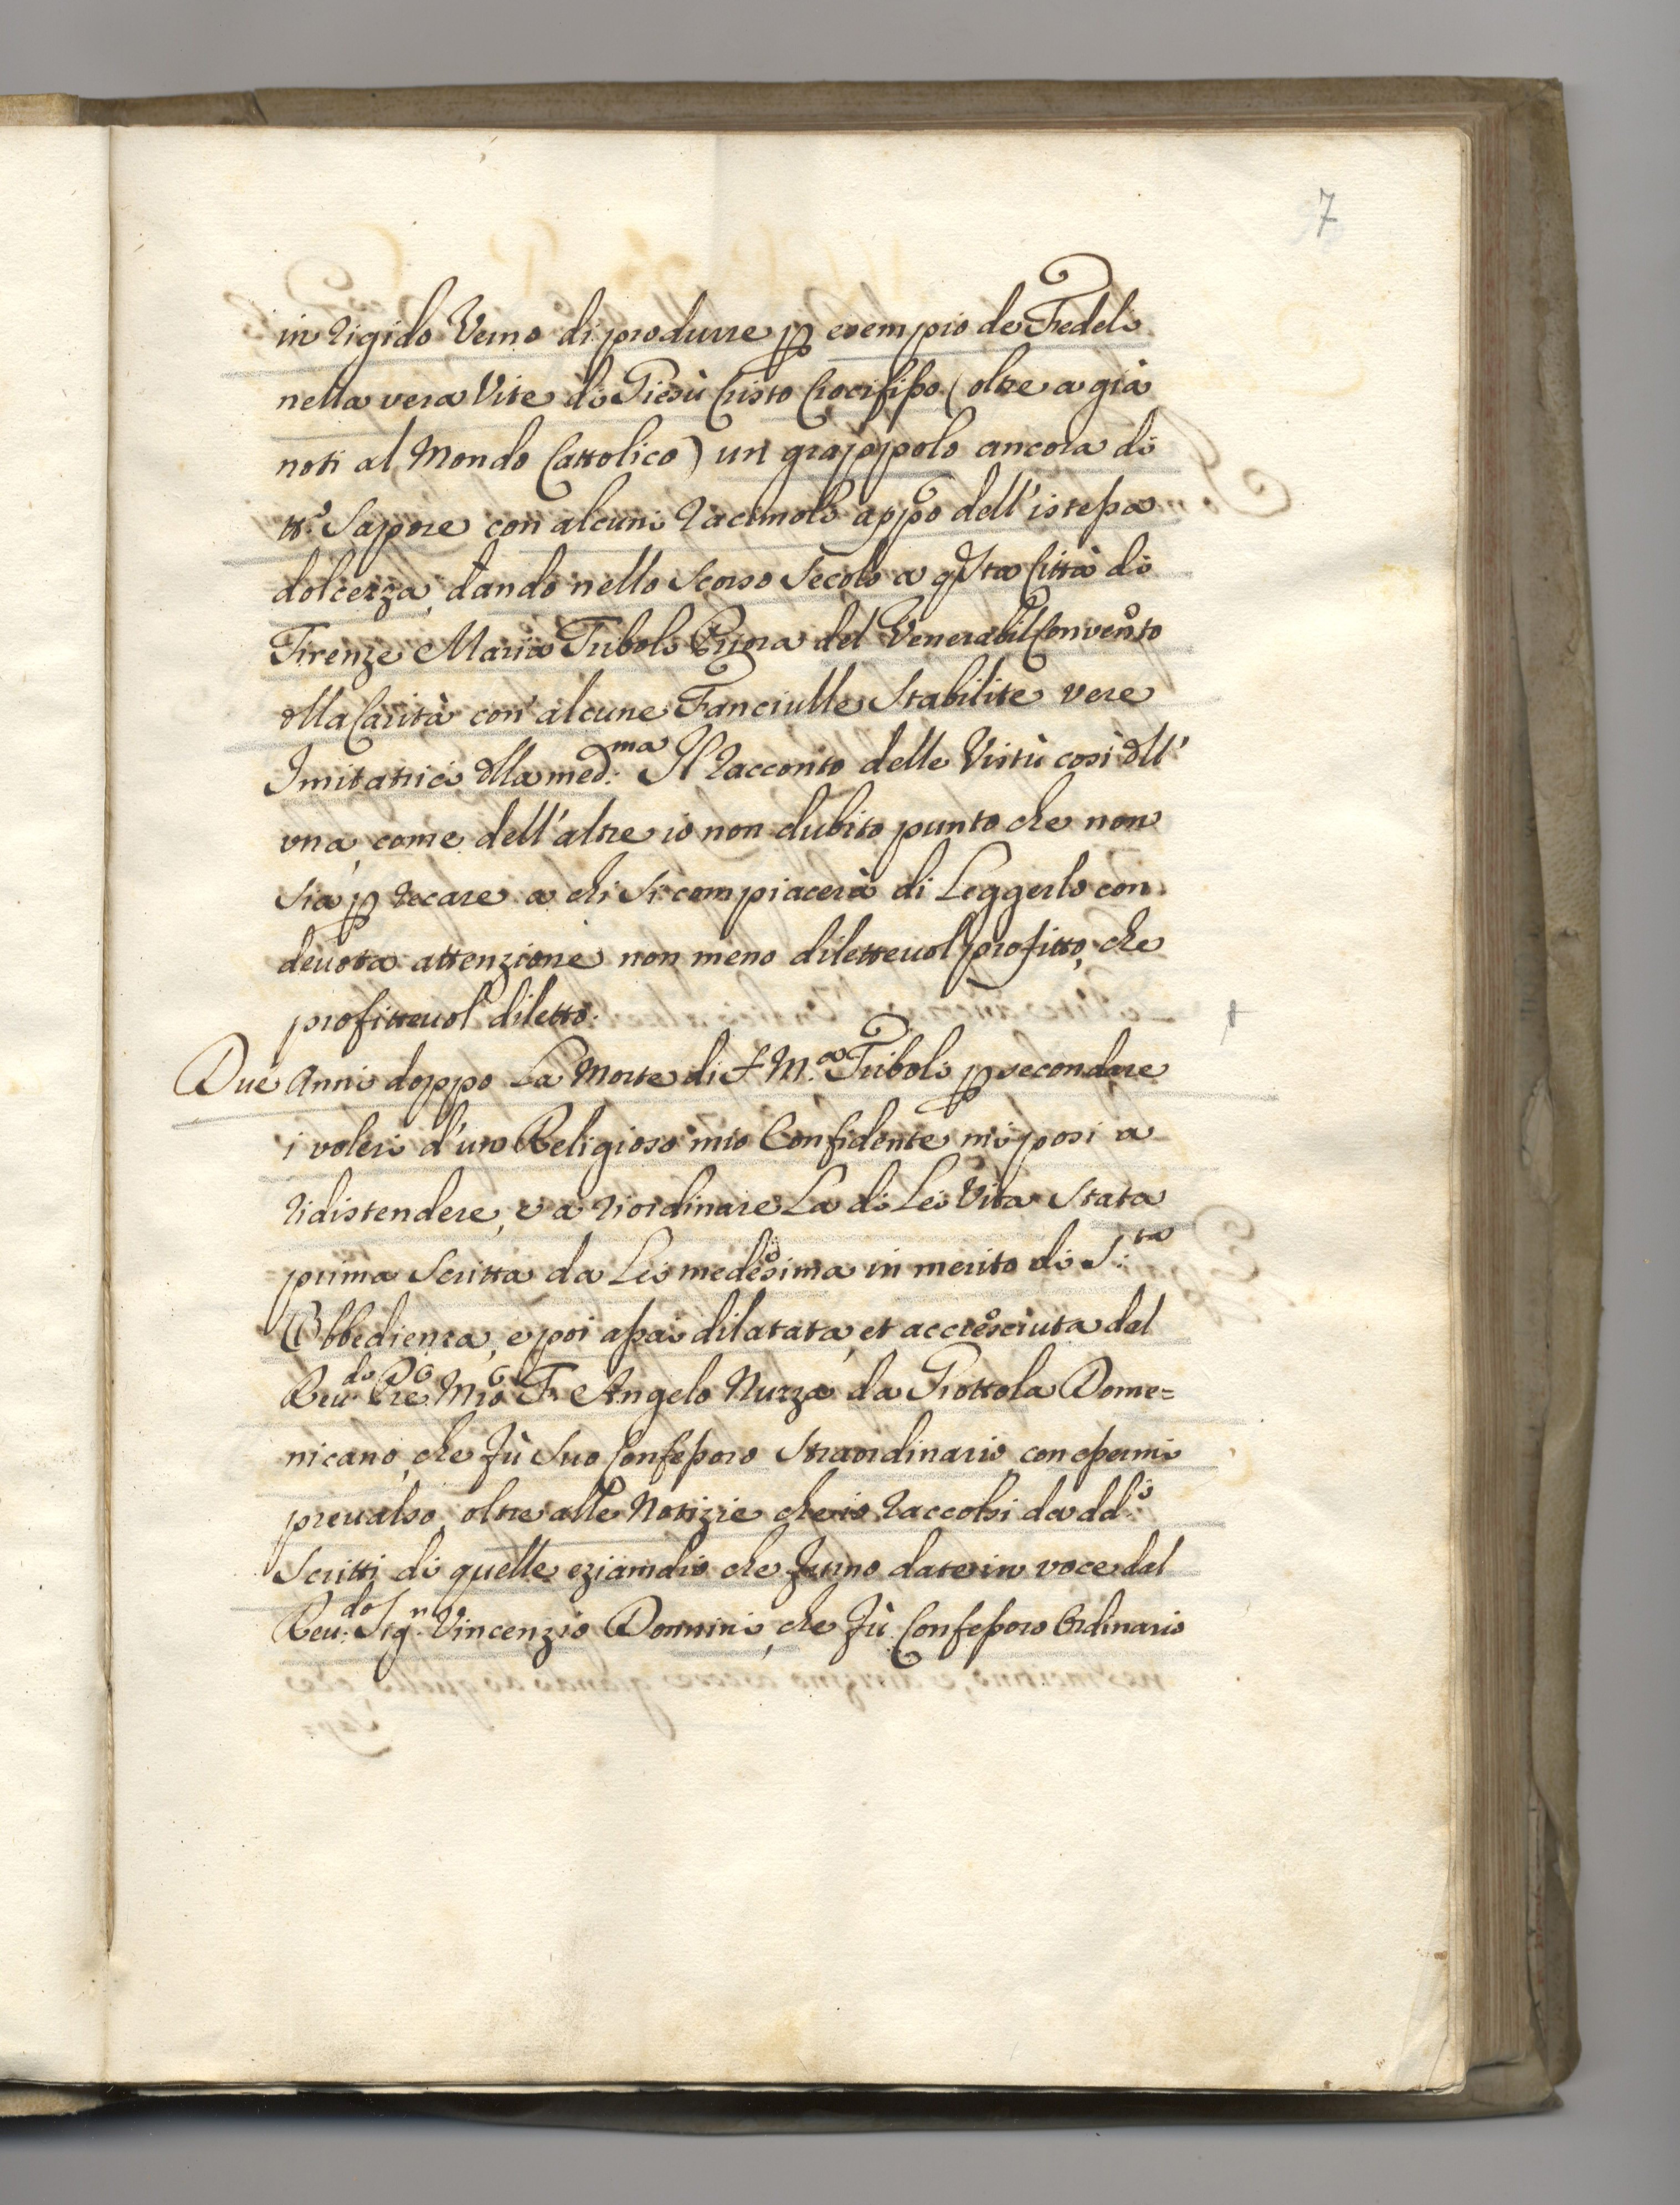 7
in rigido Verno di produrre p esempio de Fedeli
nella vera Vite di Giesù Cristo Crocifisso (oltre a già
noti al Mondo Cattolico) un grappolo ancora di
tt.o Sapore con alcuni racimoli appo dell'istessa
dolcezza, dando nello Scorso Secolo a qsta Città di
Firenze Maria Triboli Priora del Venerabil Convento
dlla Carità con alcune Fanciulle Stabilite vere
Imitatrici dlla med:ma Il racconto delle Virtù così dll'
una, come dell'altre io non dubito punto che non
sia p recare a chi si compiacerà di Leggerlo con
deuota attenzione non meno diletteuol profitto, che
profitteuol diletto.
Due Anni doppo La Morte di S M.a Triboli p secondare
i voleri d'un Religioso mio Confidente mi posi a
ridistendere, e a riordinare La di Lei Vita Stata
prima Scritta da Lei medesima in merito di S:ta
Obbedienza, e poi assai dilatata, et accresciuta dal
Reu.do Pre Mro F. Angelo Nuzza da Grottola Dome=
nicano, che fù Suo Confessoro Straordinario, con essermi
preualso, oltre alle Notizie che io raccolsi da dd.i
Scritti di quelle eziamdio che furno date in voce dal
Reu:do Sig.r Vincenzio Donnini, che fù Confessoro Ordinario